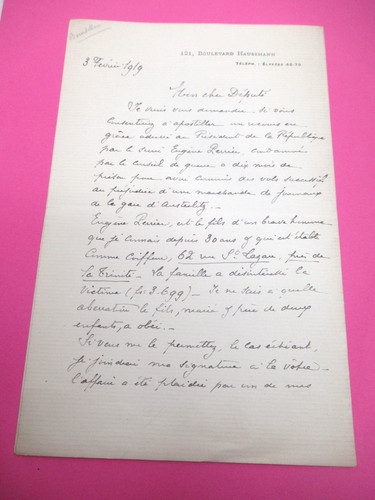 151, BOULEVARD HAUSSMANN
TÉLÉPH : ÉLYSÉES
3 Février 1919
Mon cher Député
Je viens vous demander si vous
consentiriez à apostiller un recours en
grâce adressé au Président de la République
par le Eugène Perrier, condamné
par le Conseil de guerre, à dix mois de
prison pour avoir commis des vols successifs
au préjudice d'une marchande de journaux
de la gare d'Austerlitz
Eugène Perrier, est le fils d'un brave homme
que je connais depuis 30 ans & qui est établi
comme coiffeur, 62 rue St Lazare, près de
la Trinité. La famille a désintéressé la
victime (frs 3.699) — Je ne sais à quelle
aberration le fils, marié & père de deux
enfants, a obéi.—
Si vous me le permettez, le cas échéant,
je joindrai ma signature à la vôtre—
l'affaire a été plaidée par un de mes